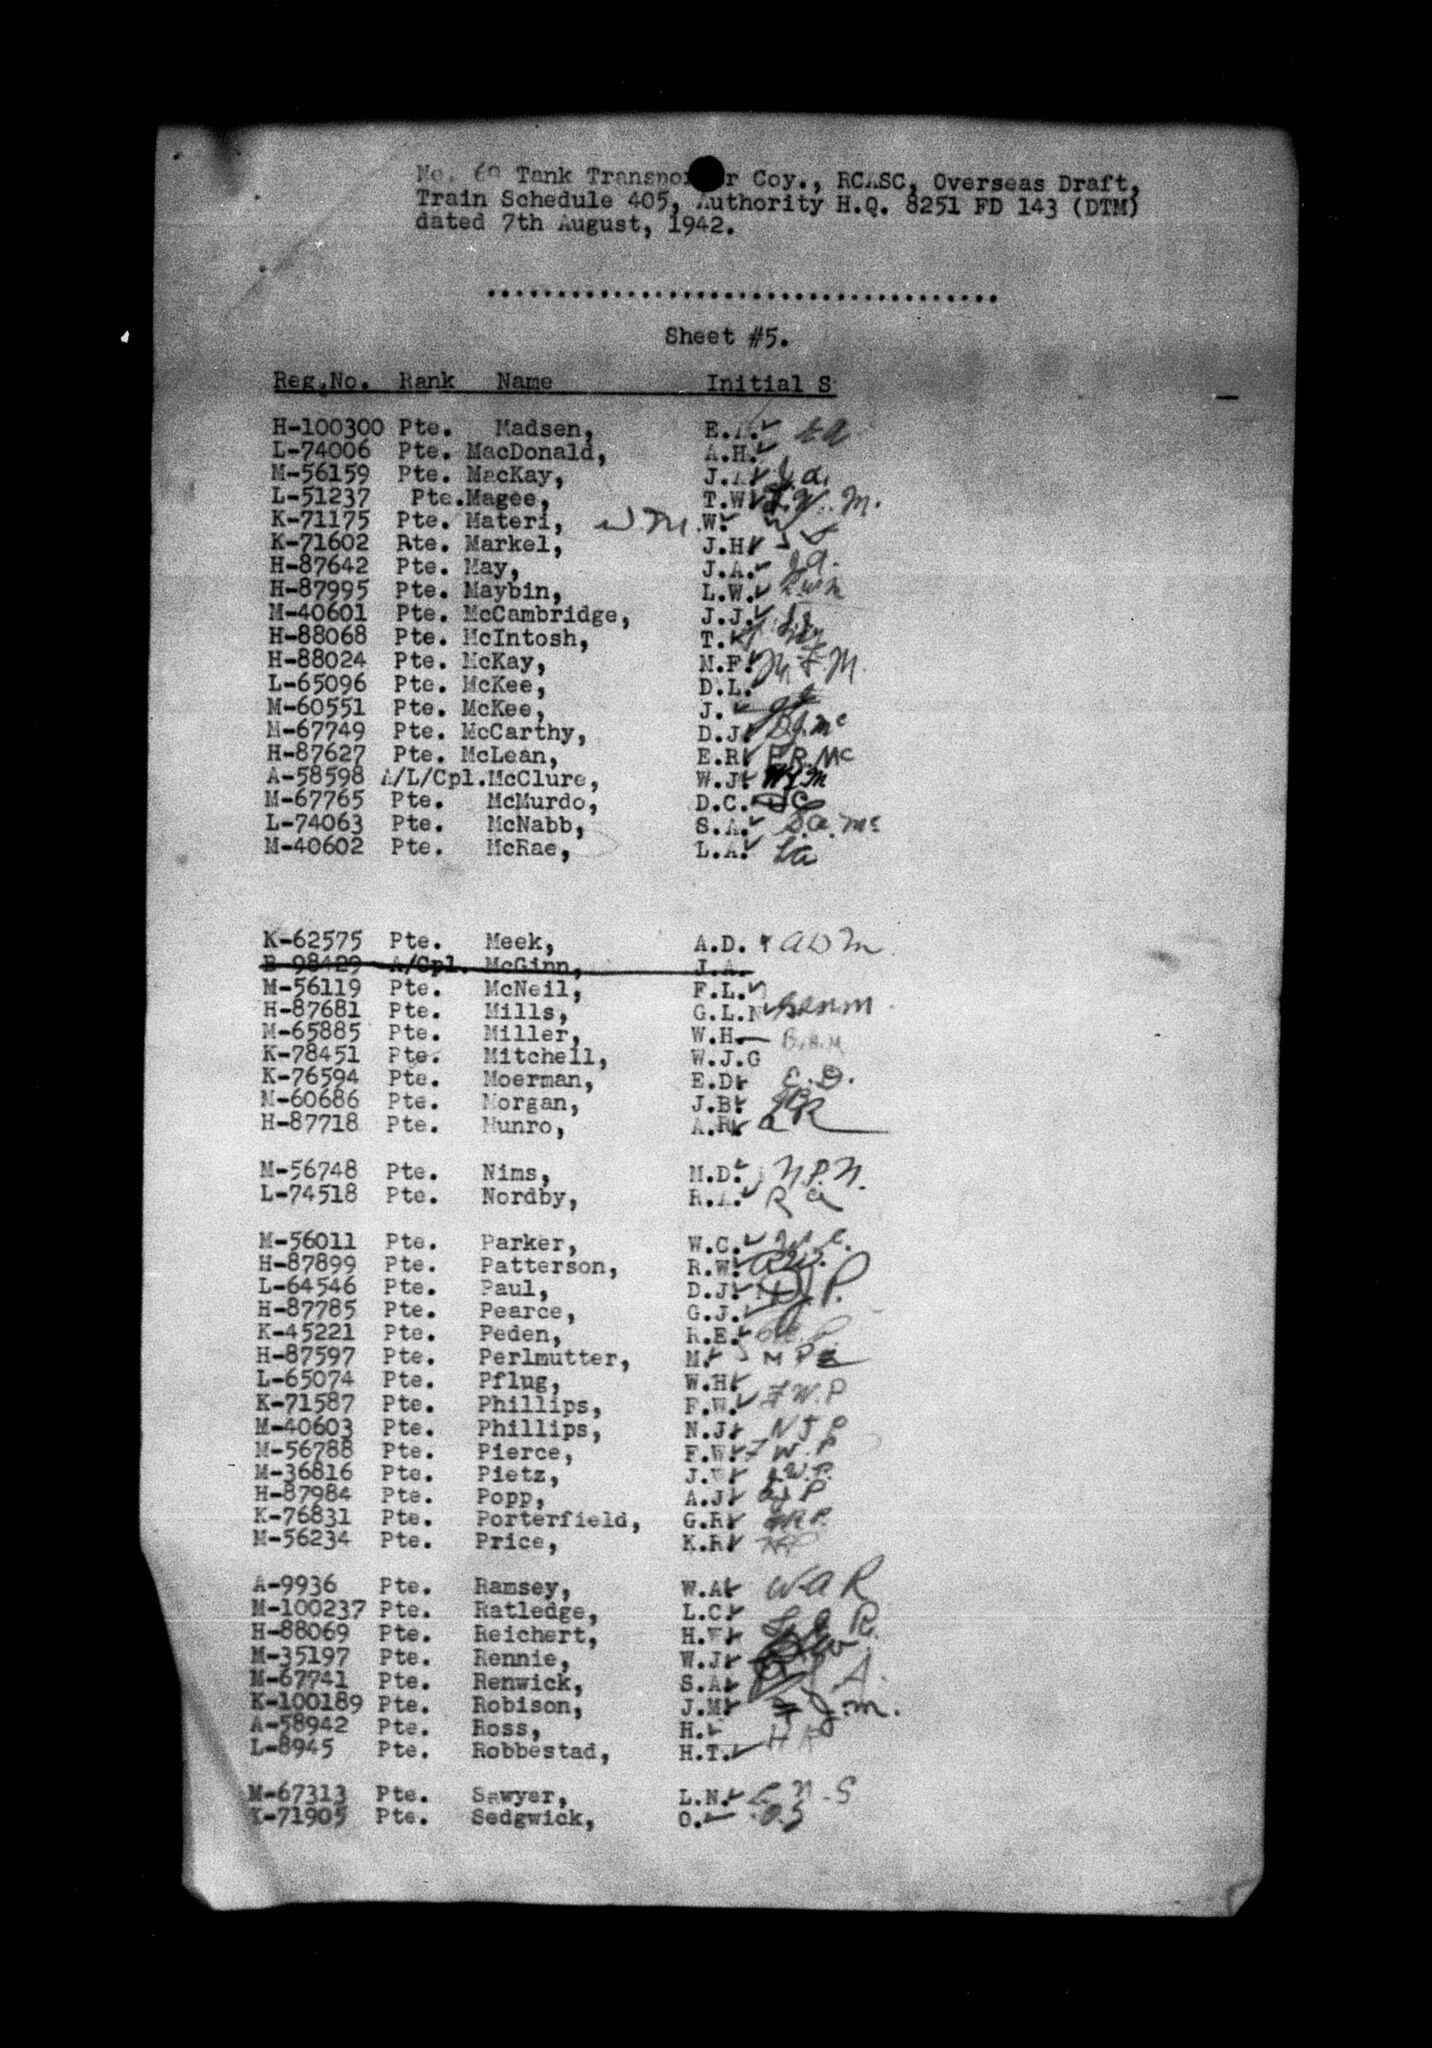 No. 69 Tank Transporter Coy., RCASC, Overseas Draft,
Train Schedule 405, Authority H.Q. 8251 FD 143 (DTM)
dated 7th August, 1942.
Sheet #5.
Reg.No. Rank Name Initial S
H-100300 Pte. Madsen, E.A.
L-74006 Pte. MacDonald, A.H.
M-56159 Pte. MacKay, J.A. J.a.
L-51237 Pte. Magee, T.W. T.W.M.
K-71175 Pte. Materi, W.M. W.
K-71602 Rte. Markel, J.H.
H-87642 Pte. May, J.A. J.a.
H-87995 Pte. Maybin, L.W.
M-40601 Pte. McCambridge, J.J.
H-88068 Pte. McIntosh, T.
H-88024 Pte. McKay, M.F. M.F.M.
L-65096 Pte. McKee, D.L.
M-60551 Pte. McKee, J.
M-67749 Pte. McCarthy, D.J. D.J.Mc
H-87627 Pte. McLean, E.R. E.R.Mc
A-58598 A/L/Cpl. McClure, W.J. WJM
M-67765 Pte. McMurdo, D.C. DC
L-74063 Pte. McNabb, S.A. S.a.Mc
M-40602 Pte. McRae, L.A. La
K-62575 Pte. Meek, A.D. ADM
B-98429 A/Cpl. McGinn, J.A.
M-56119 Pte. McNeil, F.L.
H-87681 Pte. Mills, G.L.N
M-65885 Pte. Miller, W.H. B.H.M
K-78451 Pte. Mitchell, W.J.G
K-76594 Pte. Moerman, E.D. E.D.
M-60686 Pte. Morgan, J.B. JB
H-87718 Pte. Munro, A.R. aR
M-56748 Pte. Nims, M.D.
L-74518 Pte. Nordby, R.A. Ra
M-56011 Pte. Parker, W.C. W.C.
H-87899 Pte. Patterson, R.W.
L-64546 Pte. Paul, D.J. DJP.
H-87785 Pte. Pearce, G.J.
K-45221 Pte. Peden, R.E.
H-87597 Pte. Perlmutter, M. MP
L-65074 Pte. Pflug, W.H.
K-71587 Pte. Phillips, F.W. FW.P
M-40603 Pte. Phillips, N.J. NJP
M-56788 Pte. Pierce, F.W. FW.P
M-36816 Pte. Pietz, J.W. J.W.P.
H-87984 Pte. Popp, A.J. ajP
K-76831 Pte. Porterfield, G.R. GRP.
M-56234 Pte. Price, K.R. KRP
A-9936 Pte. Ramsey, W.A. WAR
M-100237 Pte. Ratledge, L.C.
H-88069 Pte. Reichert, H.W.
M-35197 Pte. Rennie, W.J.
M-67741 Pte. Renwick, S.A.
K-100189 Pte. Robison, J.M. J.m.
A-58942 Pte. Ross, H.
L-8945 Pte. Robbestad, H.T.
M-67313 Pte. Sawyer, L.N. L.N.S
K-71905 Pte. Sedgwick, O. OS